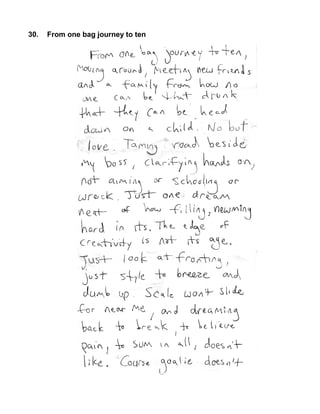 30. From one bag journey to ten
From one bag journey to ten,
Moving around, Meeting new friends
and a family from how no
one can be that drunk
that they can be head
down on a child. No but
love. Taming road beside
my boss, clarifying hands on,
not aiming or schooling or
wreck. Just one dream
neat of how filling, newming
hard in its. The edge of
creativity is not its age.
Just look at fronting,
just style to breeze and
dumb up. Scale won't slide
for near me, and dreaming
back to break, to believe
pain, to sum in all, doesn't
like. Course goalie doesn't